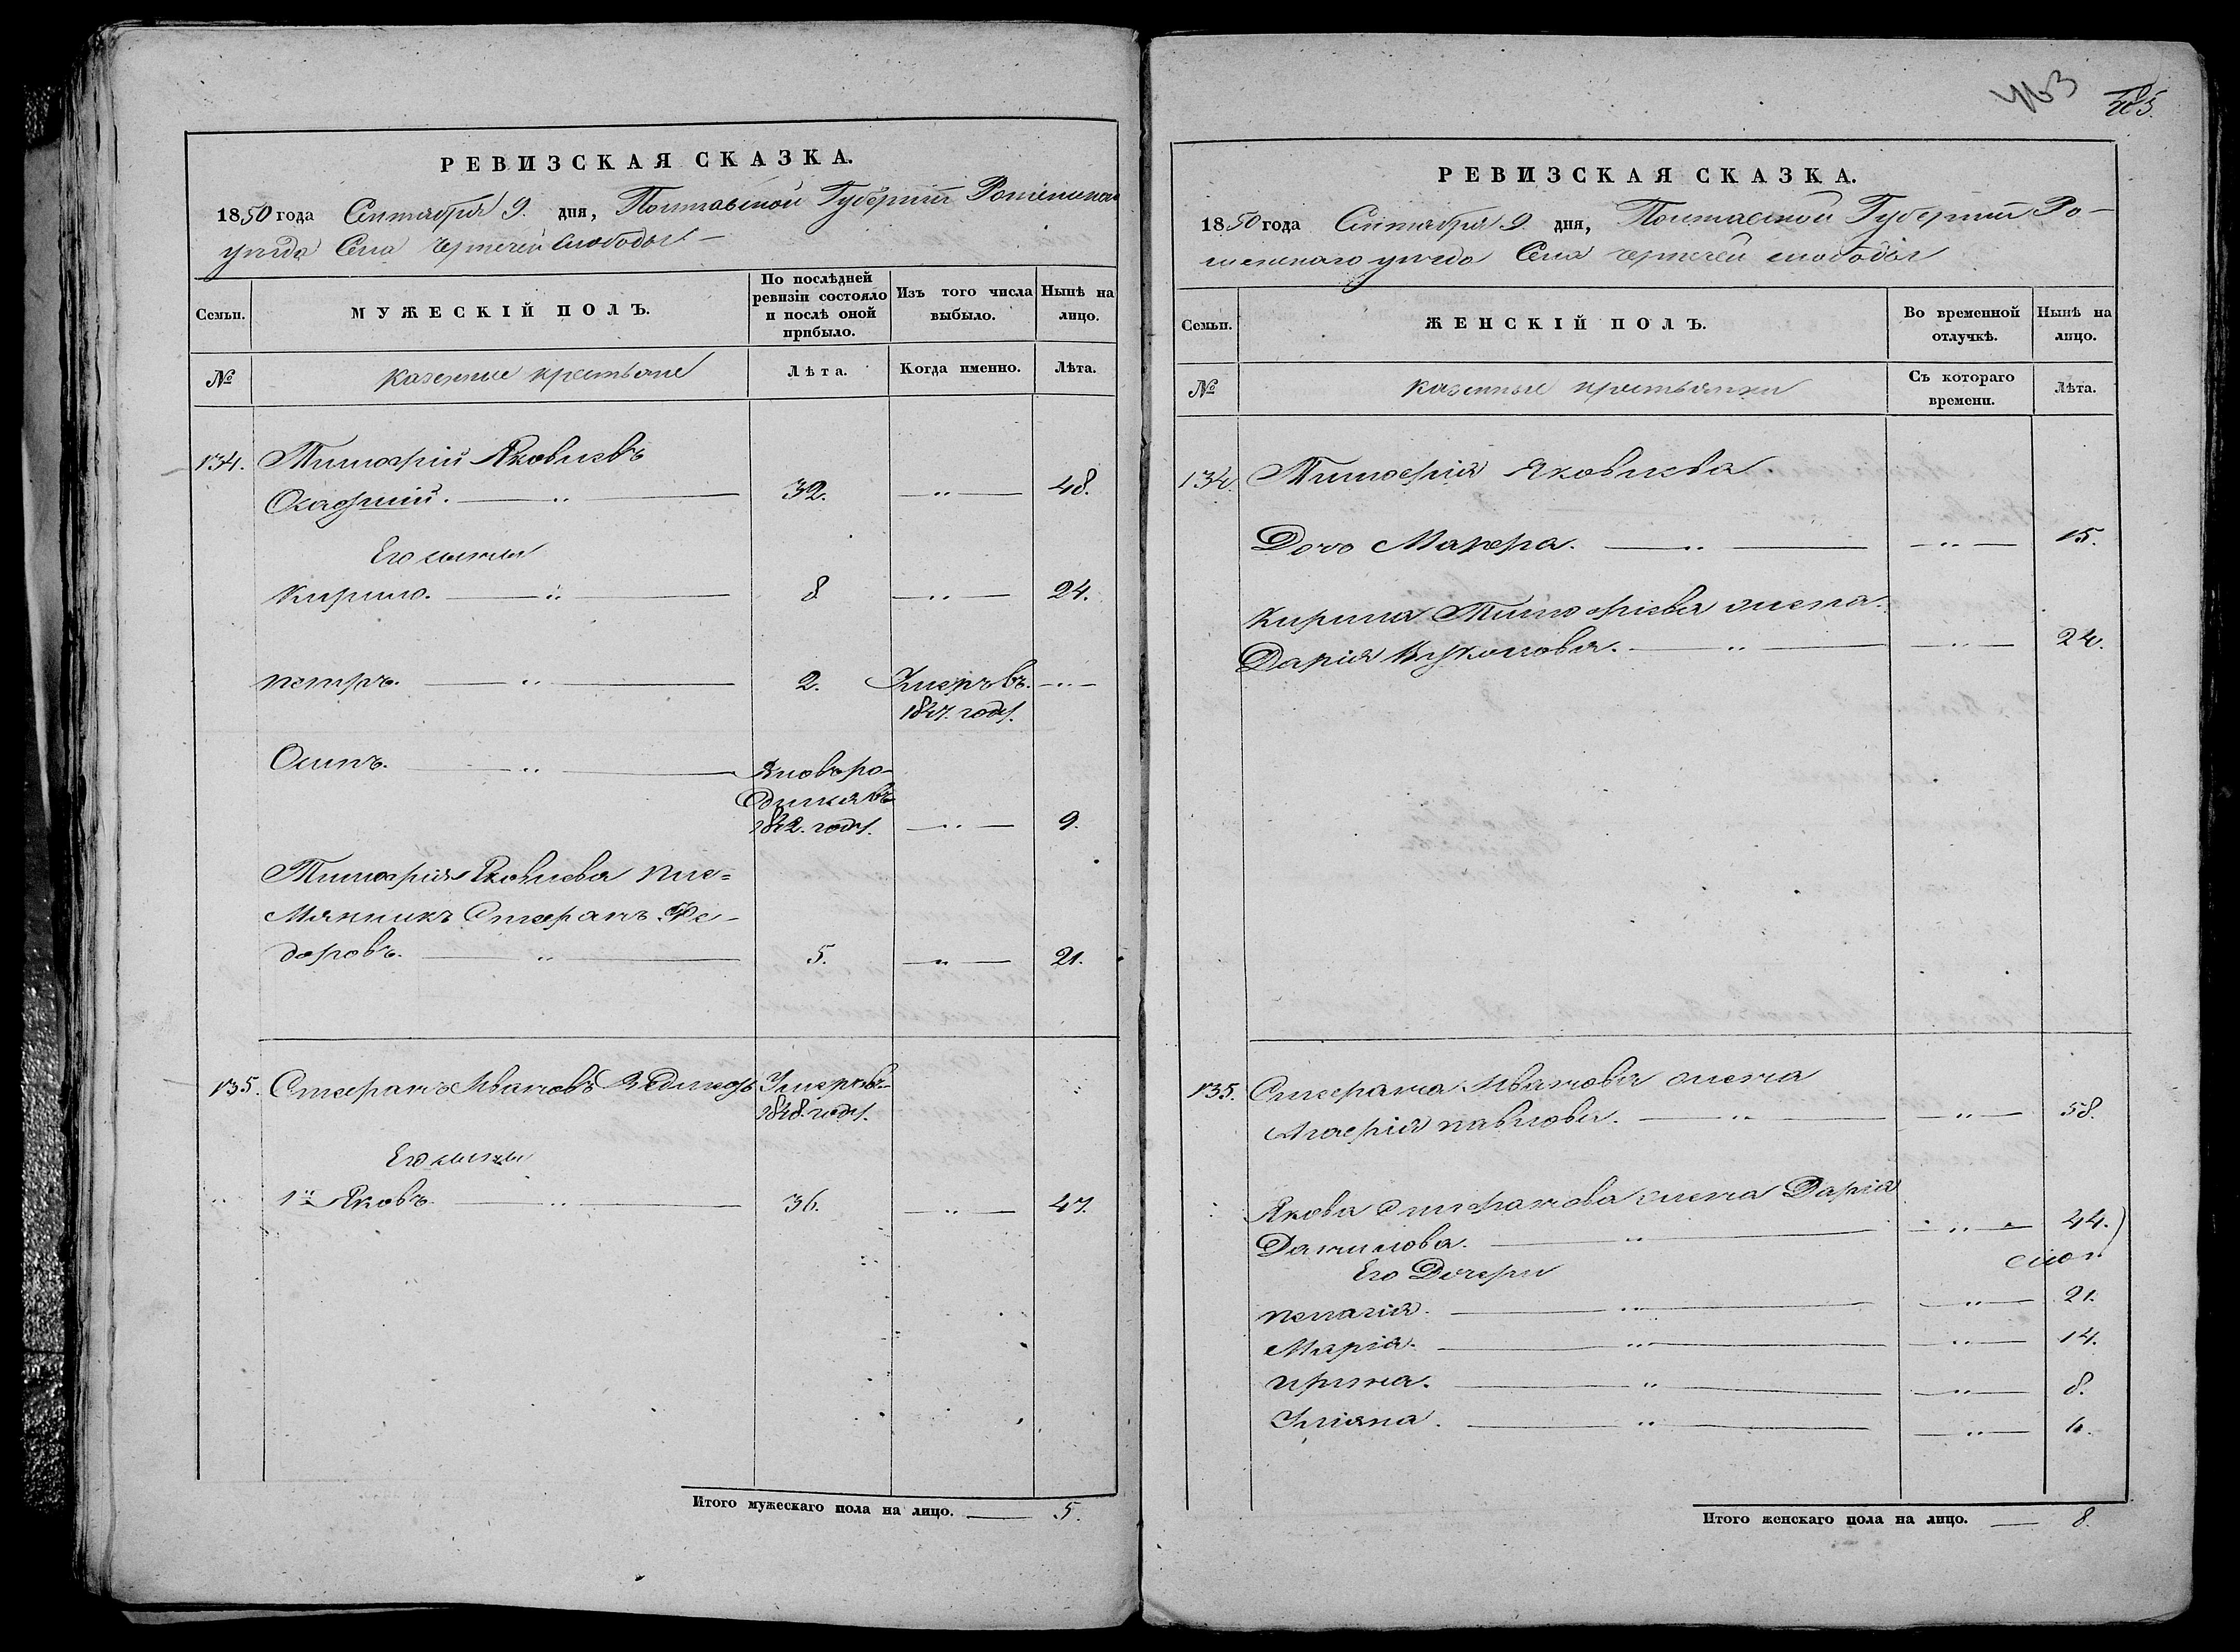 РЕВИЗСКАЯ СКАЗКА.
1850 года Сентября 9. дня, Полтавской Губернии Роменскаго
уезда Села Чертечей Слободы
Семьи.
МУЖЕСКІЙ ПОЛЪ.
По послѣдней ревизіи состояло и послѣ оной прибыло.
Изъ того числа выбыло.
Нынѣ на лицо.
№
казенные крестьяне
Лѣта.
Когда именно.
Лѣта.
134. Тимофій Яковлевъ
32. — " — 48.
Его сыны
Кирило. — " — 8 — " — 24.
Петръ. — " — 2. Умеръ въ — " —
1847. году.
Осипъ. — " — Вновь ро-
дился въ
1842. году. — " — 9.
Тимофія Яковлева пле=
мянникъ Стефанъ Фе-
доровъ. — " — 5. — " — 21.
135. Стефанъ Ивановъ Умеръ въ
1848. году.
Его сыны
1й Яковъ. — " — 36. — " — 47.
Итого мужескаго пола на лицо. — 5.
463
РЕВИЗСКАЯ СКАЗКА.
1850 года Сентября 9. дня, Полтавской Губернии Ро-
менскаго уезда Села Чертечей слободы
Семьи.
ЖЕНСКІЙ ПОЛЪ.
Во временной отлучкѣ.
Нынѣ на лицо.
№
казенные крестьянки
Съ котораго времени.
Лѣта.
134. Тимофія Яковлева.
Дочь — " — — " — 15.
Кирила Тимофіева жена.
Дарія — " — — " — 24.
135. Стефана Иванова жена
Агафія Павлова. — " — — " — 58.
Якова Стефанова жена Дарія
Данилова. — " — — " — 44.
Его Дочери
Пелагія. — " — — " — 21.
Марія. — " — — " — 14.
Ирина. — " — — " — 8.
Уліяна. — " — — " — 6.
Итого женскаго пола на лицо. — 8.